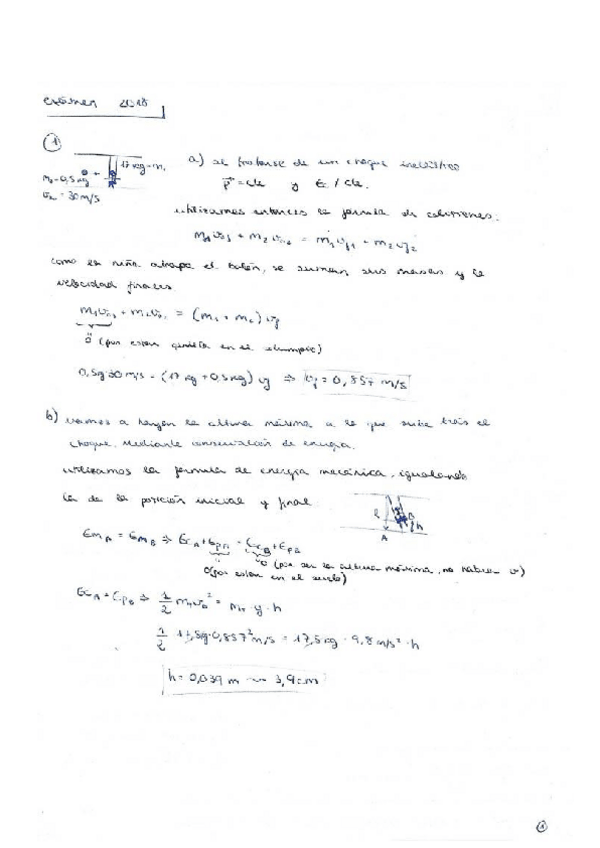 exámen 2018
1
17 kg = m1
m2 = 0,5 kg
v2 = 30 m/s
a) al tratarse de un choque inelástico
p = cte y Ec ≠ cte.
utilizamos entonces la fórmula de colisiones:
m1 v01 + m2 v02 = m1 vf1 + m2 vf2
como la niña atrapa el balón, se suman sus masas y la
velocidad finales
m1 v01 + m2 v02 = (m1 + m2) vf
0 (por estar quieta en el columpio)
0,5g·30 m/s = (17 kg + 0,5 kg) vf ⇒ vf = 0,857 m/s
b) vamos a hayar la altura máxima a la que sube trás el
choque, mediante conservación de energía.
utilizamos la fórmula de energía mecánica, igualando
la de la posición inicial y final
l B h
A
EmA = EmB ⇒ EcA + EpA = EcB + EpB
0 (por ser la altura máxima, no habrá v)
0 (por estar en el suelo)
EcA = EpB ⇒ 1/2 mT v0² = mT · g · h
1/2 17,5g·0,857² m/s = 17,5 kg · 9,8 m/s² · h
h = 0,039 m → 3,9 cm
1